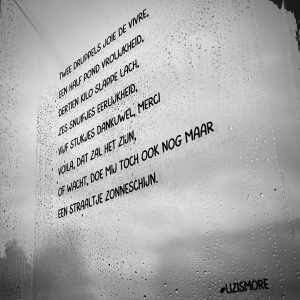 TWEE DRUPPELS JOIE DE VIVRE,
EEN HALF POND VROLIJKHEID,
DERTIEN KILO SLAPPE LACH,
ZES SNUIFJES EERLIJKHEID,
VIJF STUKJES DANKUWEL, MERCI
VOILA, DAT ZAL HET ZIJN,
OF WACHT, DOE MIJ TOCH OOK NOG MAAR
EEN STRAALTJE ZONNESCHIJN.
#LIZISMORE